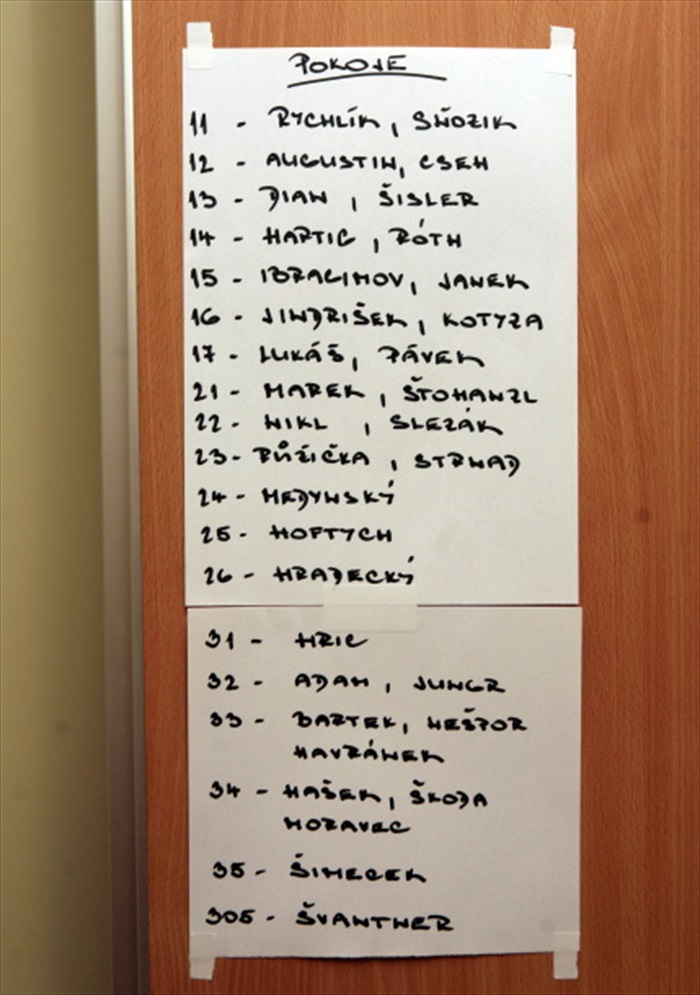 POKOJE
11 - RYCHLÍK, SŇOZIK
12 - AUGUSTIN, CSEH
13 - DIAN, ŠISLER
14 - HARTIG, RÓTH
15 - IBRAGIMOV, JANEK
16 - JINDRIŠEK, KOTYZA
17 - LUKÁŠ, PÁVEK
21 - MAREK, ŠTOHANZL
22 - NIKL, SLEZÁK
23 - RŮŽIČKA, STRNAD
24 - MEDYNSKÝ
25 - HOFTYCH
26 - HRADECKÝ
31 - HRIC
32 - ADAM, JUNGR
33 - BARTEK, NEŠPOR
HAVRÁNEK
34 - HAŠEK, ŠKODA
MORAVEC
35 - ŠIMECEK
305 - ŠVANTNER